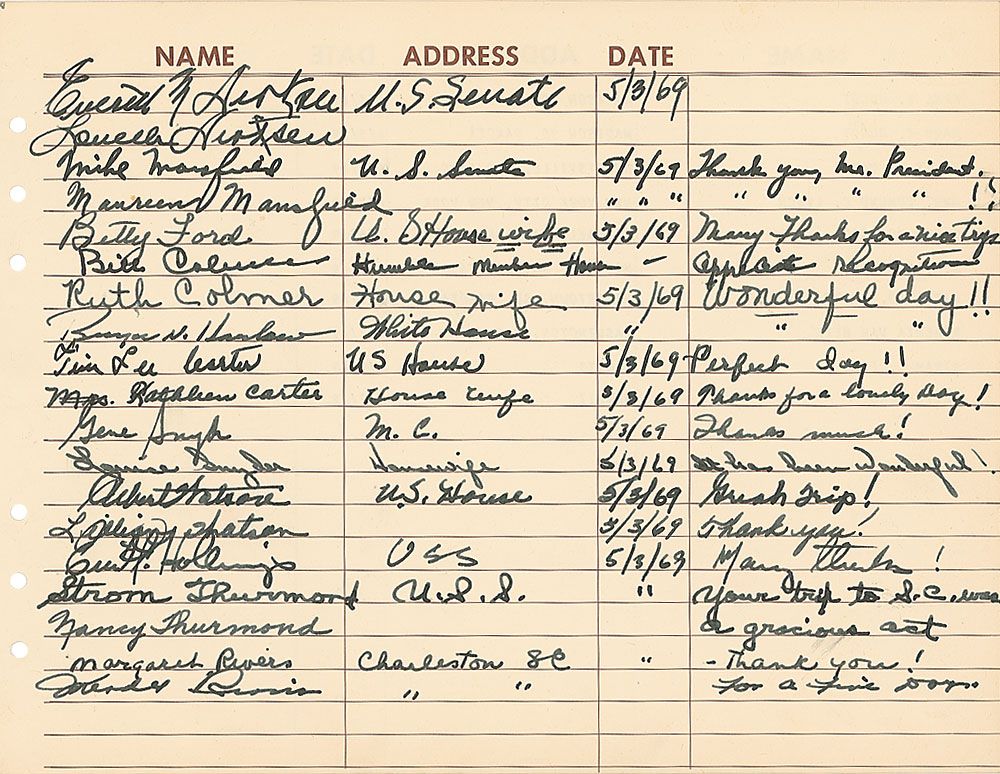 NAME ADDRESS DATE
Everett M Dirksen U.S. Senate 5/3/69
Louella Dirksen
Mike Mansfield U. S. Senate 5/3/69 Thank you, Mr. President.
Maureen Mansfield " " " " " " " !!
Betty Ford U. S House wife 5/3/69 Many Thanks for a nice trip
Bill Colmer Humble Member House — Appreciate recognition
Ruth Colmer House wife 5/3/69 Wonderful day !!
Bryce N. Harlow White House " " "
Tim Lee Carter US House 5/3/69 Perfect day !!
Mrs. Kathleen Carter House wife 5/3/69 Thanks for a lovely day !
Gene Snyder M. C. 5/3/69 Thanks much!
Louise Snyder Housewife 5/3/69 It has been wonderful!
Albert Watson U.S. House 5/3/69 Great trip!
Lillian Watson 5/3/69 Thank you!
Hollings USS 5/3/69 Many thanks !
Strom Thurmond U.S.S. " Your trip to S.C. was
Nancy Thurmond a gracious act
Margaret Rivers Charleston SC " - Thank you !
Mendel Rivers " " For a Fine Day.